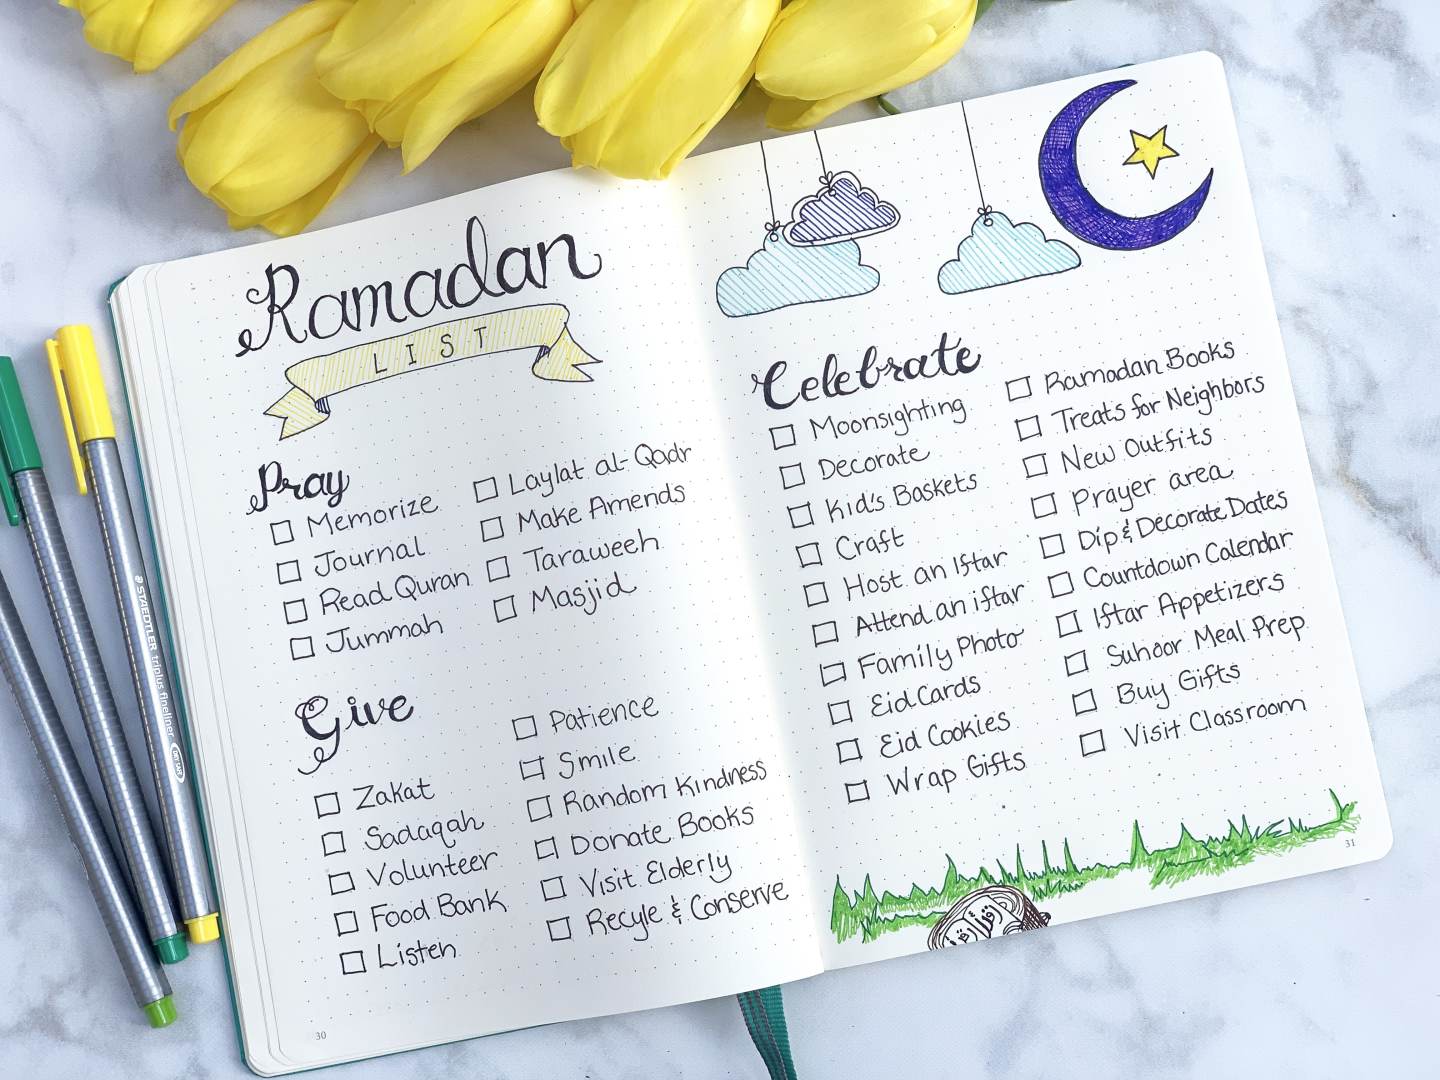 Ramadan
LIST
Pray
Memorize
Journal
Read Quran
Jummah
Laylat al-Qadr
Make Amends
Taraweeh
Masjid
Give
Zakat
Sadaqah
Volunteer
Food Bank
Listen
Patience
Smile
Random Kindness
Donate Books
Visit Elderly
Recyle & Conserve
30
Celebrate
Moonsighting
Decorate
Kid's Baskets
Craft
Host an Iftar
Attend an iftar
Family Photo
Eid Cards
Eid Cookies
Wrap Gifts
Ramadan Books
Treats for Neighbors
New Outfits
Prayer area
Dip & Decorate Dates
Countdown Calendar
Iftar Appetizers
Suhoor Meal Prep
Buy Gifts
Visit Classroom
31
STAEDTLER triplus fineliner
DRY SAFE